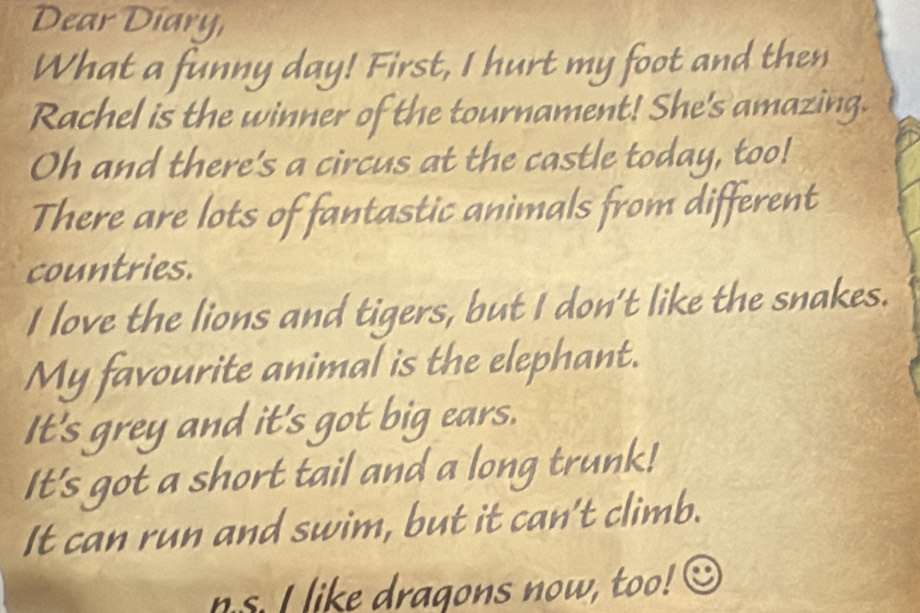 Dear Diary,
What a funny day! First, I hurt my foot and then
Rachel is the winner of the tournament! She's amazing.
Oh and there's a circus at the castle today, too!
There are lots of fantastic animals from different
countries.
I love the lions and tigers, but I don't like the snakes.
My favourite animal is the elephant.
It's grey and it's got big ears.
It's got a short tail and a long trunk!
It can run and swim, but it can't climb.
p.s. I like dragons now, too! ☺